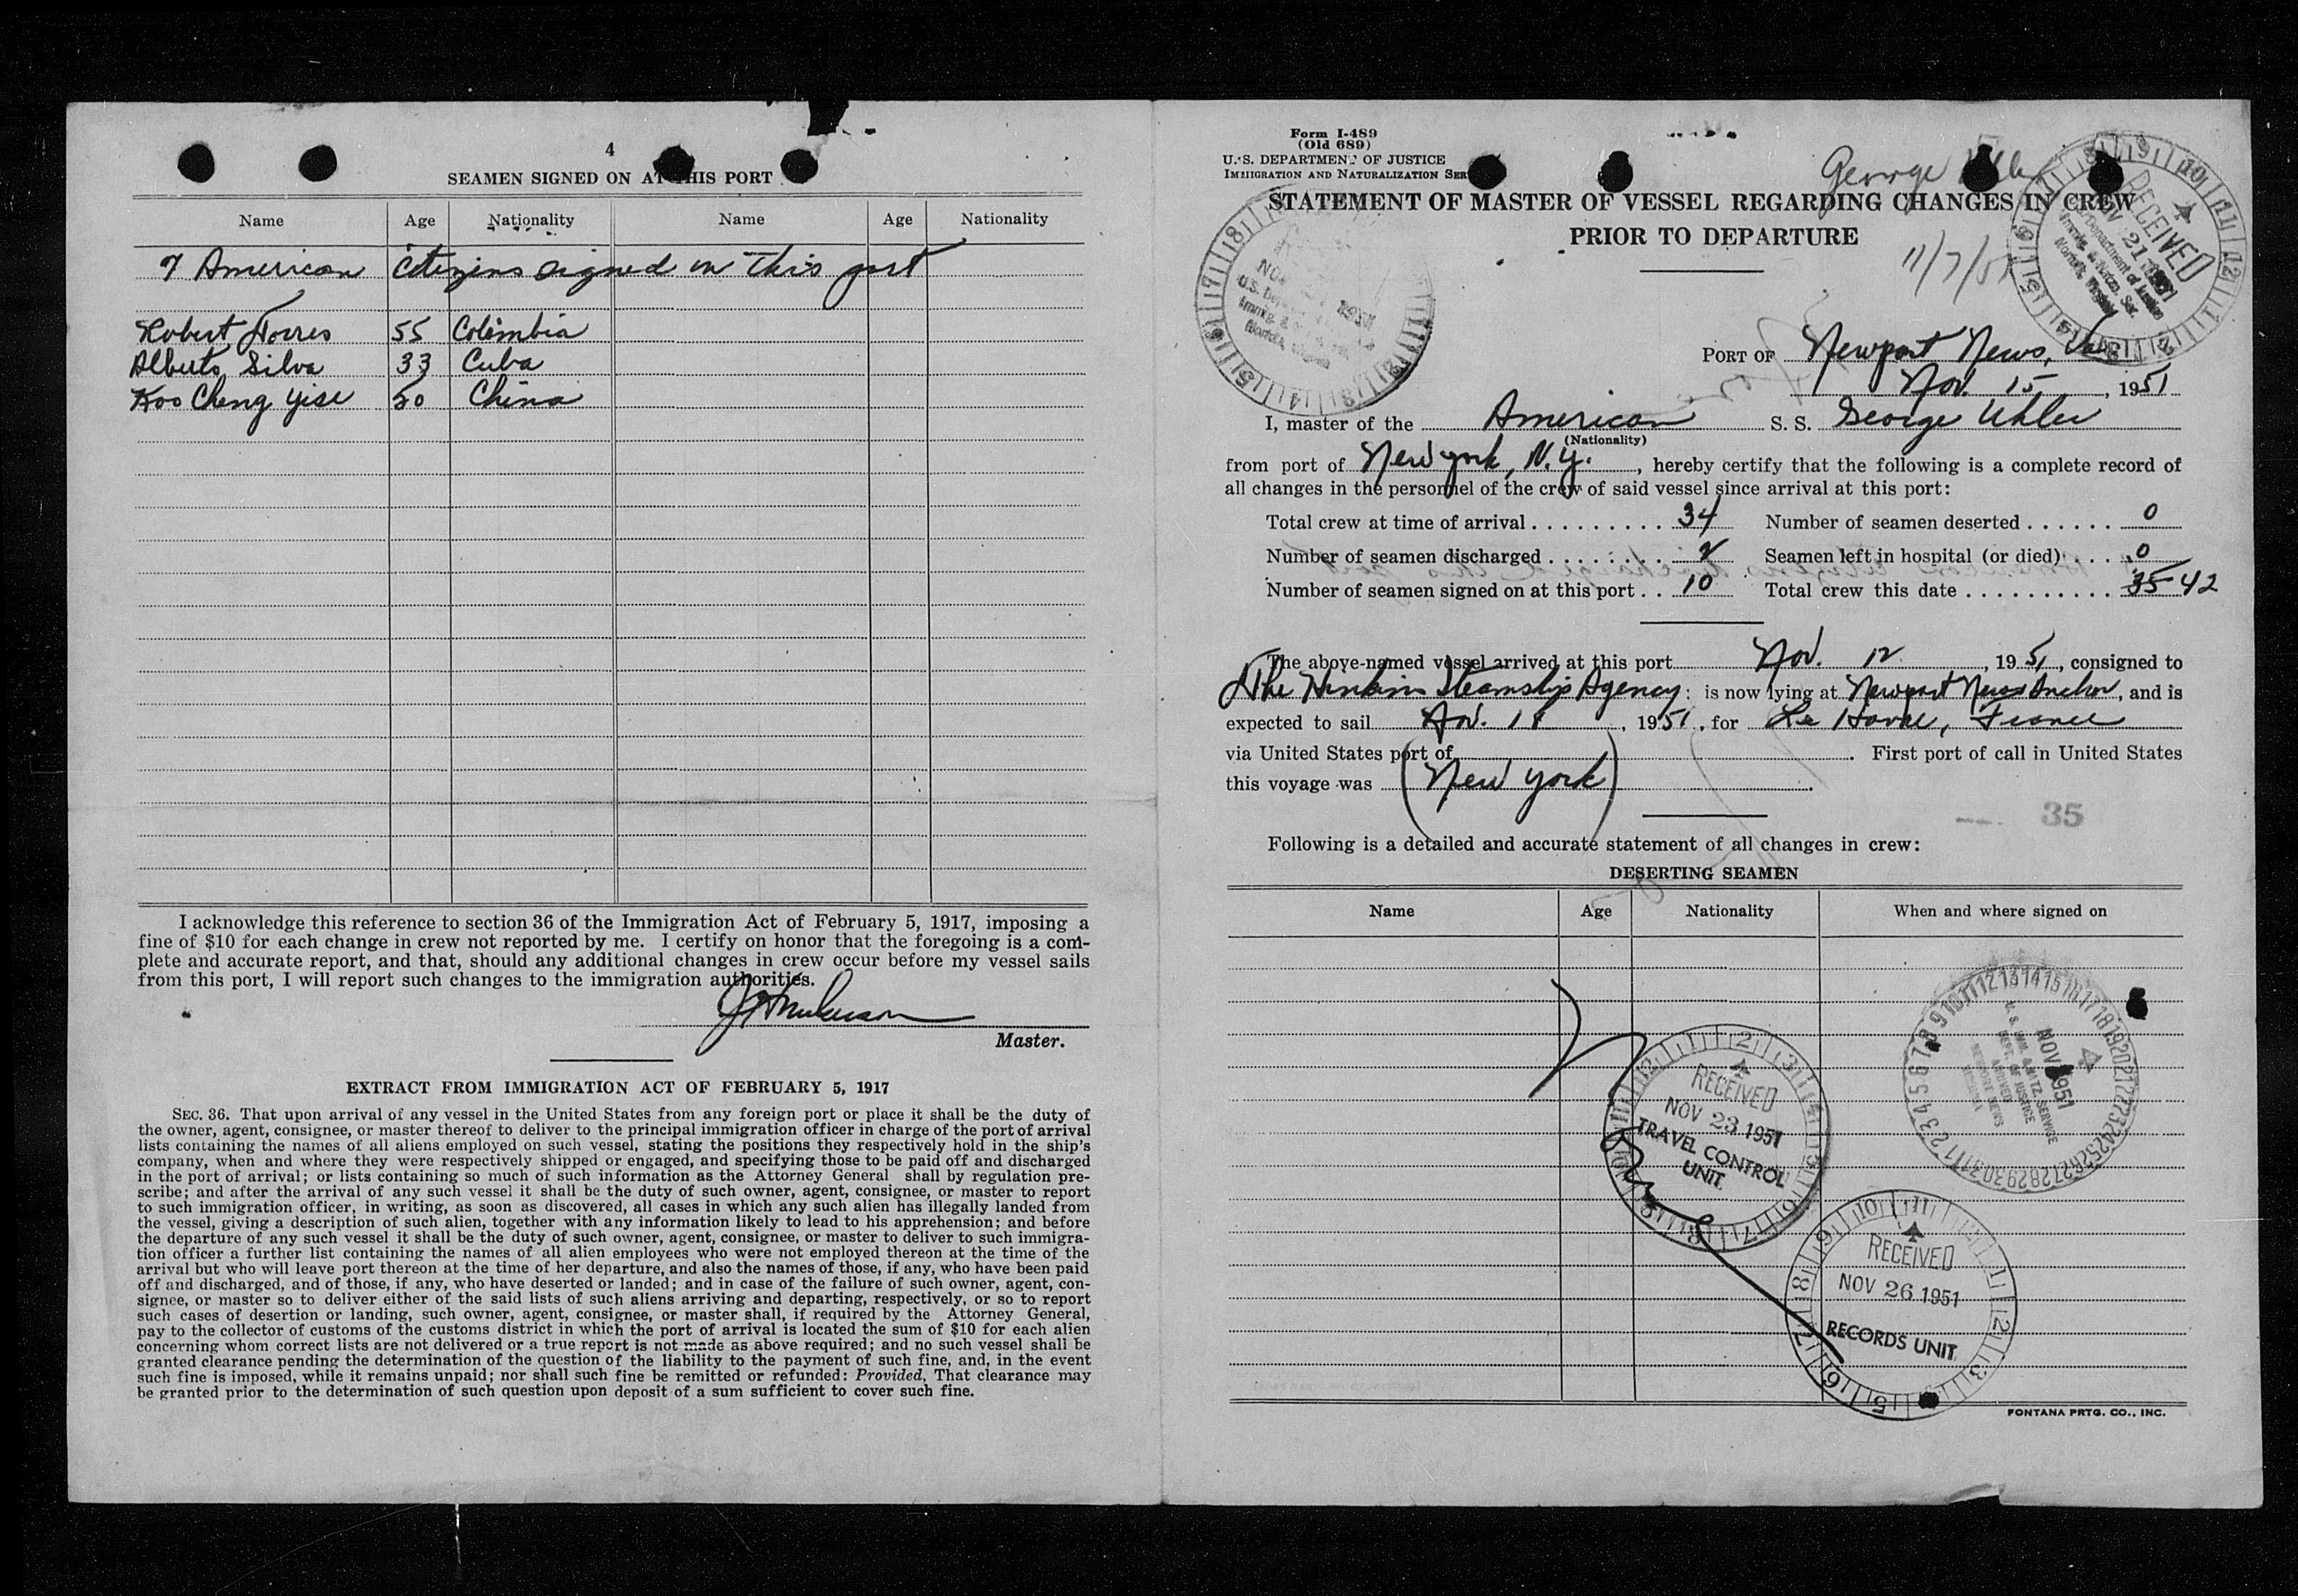 4
SEAMEN SIGNED ON AT THIS PORT
Name Age Nationality Name Age Nationality
7 American Citizens signed on this port
Robert Torres 55 Colombia
Alberto Silva 33 Cuba
Koo Cheng 50 China
I acknowledge this reference to section 36 of the Immigration Act of February 5, 1917, imposing a
fine of $10 for each change in crew not reported by me. I certify on honor that the foregoing is a com-
plete and accurate report, and that, should any additional changes in crew occur before my vessel sails
from this port, I will report such changes to the immigration authorities.
Master.
EXTRACT FROM IMMIGRATION ACT OF FEBRUARY 5, 1917
SEC. 36. That upon arrival of any vessel in the United States from any foreign port or place it shall be the duty of
the owner, agent, consignee, or master thereof to deliver to the principal immigration officer in charge of the port of arrival
lists containing the names of all aliens employed on such vessel, stating the positions they respectively hold in the ship's
company, when and where they were respectively shipped or engaged, and specifying those to be paid off and discharged
in the port of arrival; or lists containing so much of such information as the Attorney General shall by regulation pre-
scribe; and after the arrival of any such vessel it shall be the duty of such owner, agent, consignee, or master to report
to such immigration officer, in writing, as soon as discovered, all cases in which any such alien has illegally landed from
the vessel, giving a description of such alien, together with any information likely to lead to his apprehension; and before
the departure of any such vessel it shall be the duty of such owner, agent, consignee, or master to deliver to such immigra-
tion officer a further list containing the names of all alien employees who were not employed thereon at the time of the
arrival but who will leave port thereon at the time of her departure, and also the names of those, if any, who have been paid
off and discharged, and of those, if any, who have deserted or landed; and in case of the failure of such owner, agent, con-
signee, or master so to deliver either of the said lists of such aliens arriving and departing, respectively, or so to report
such cases of desertion or landing, such owner, agent, consignee, or master shall, if required by the Attorney General,
pay to the collector of customs of the customs district in which the port of arrival is located the sum of $10 for each alien
concerning whom correct lists are not delivered or a true report is not made as above required; and no such vessel shall be
granted clearance pending the determination of the question of the liability to the payment of such fine, and, in the event
such fine is imposed, while it remains unpaid; nor shall such fine be remitted or refunded: Provided, That clearance may
be granted prior to the determination of such question upon deposit of a sum sufficient to cover such fine.
Form I-489
(Old 689)
U. S. DEPARTMENT OF JUSTICE
IMMIGRATION AND NATURALIZATION SER
George
STATEMENT OF MASTER OF VESSEL REGARDING CHANGES IN CREW
PRIOR TO DEPARTURE
11/7/51
RECEIVED
NOV 21 1951
U.S. Department of Justice
Immig. & Natzn. Ser.
Norfolk, Virginia
PORT OF Newport News, Va.
Nov. 15, 1951
I, master of the American S. S. George Uhler
(Nationality)
from port of New York, N.Y., hereby certify that the following is a complete record of
all changes in the personnel of the crew of said vessel since arrival at this port:
Total crew at time of arrival 34 Number of seamen deserted 0
Number of seamen discharged 2 Seamen left in hospital (or died) 0
Number of seamen signed on at this port 10 Total crew this date 35 42
The above-named vessel arrived at this port Nov. 12, 1951, consigned to
The Hinkins Steamship Agency; is now lying at Newport News Anchor, and is
expected to sail Nov. 18, 1951, for Le Havre, France
via United States port of . First port of call in United States
this voyage was (New York).
35
Following is a detailed and accurate statement of all changes in crew:
DESERTING SEAMEN
Name Age Nationality When and where signed on
None
NOV 1951
U. S. IMM. & NATZ. SERVICE
DEPT. OF JUSTICE
ARRIVED
NEWPORT NEWS
VIRGINIA
RECEIVED
NOV 23 1951
TRAVEL CONTROL
UNIT
RECEIVED
NOV 26 1951
RECORDS UNIT
FONTANA PRTG. CO., INC.